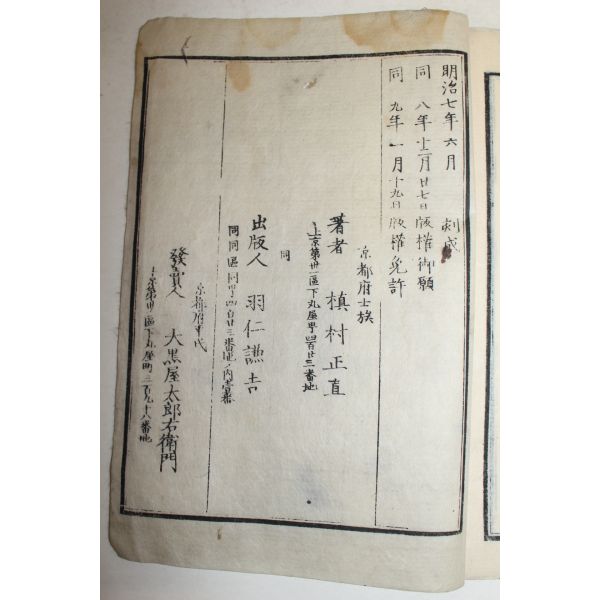 明治七年六月 刻成
同 八年十二月廿七日版權御願
同 九年一月十九日版權免許
京都府士族
著者 槙村正直
上京第卅一區下丸屋町四百廿三番地
同
出版人 羽仁謙吉
同同區同町四百廿三番地ノ内壹番
京都府平民
發賣人 大黒屋太郎右衛門
上京第卅一區下丸屋町三百九十八番地